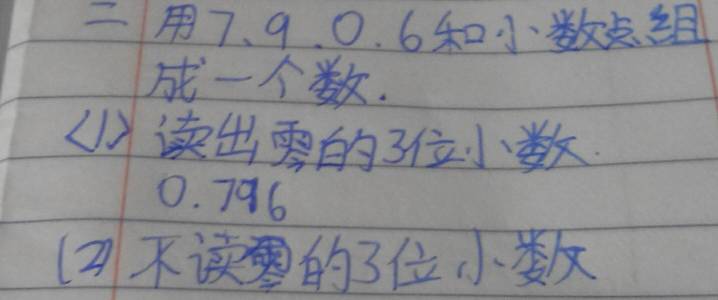 二 用7、9.0.6和小数点组
成一个数.
<1> 读出零的3位小数.
0.796
(2) 不读零的3位小数